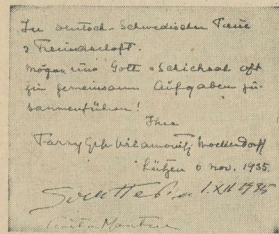 In deutsch-schwedischer Treue
& Freundschaft.
Mögen uns Gott & Schicksal oft
zu gemeinsamen Aufgaben zu-
sammenführen!
Ihre
Fanny Gfn Wilamowitz Moellendorff
Lützen 6 nov. 1935.
1.XII 1935